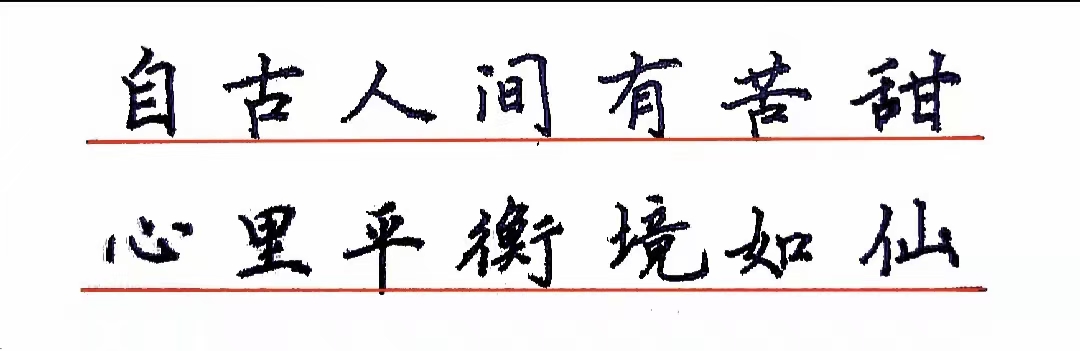 自古人间有苦甜
心里平衡境如仙